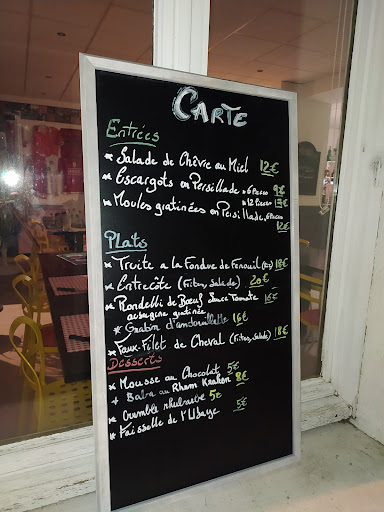 CARTE
Entrées
* Salade de Chèvre au Miel 12€
* Escargots en Persillade x6 Pièces 9€
x12 Pièces 17€
* Moules gratinées en Persillade, 6 Pièces
12€
Plats
* Truite a la Fondue de Fenouil (Riz) 18€
* Entrecôte (Frites, Salade) 20€
* Rondelli de Bœuf Sauce Tomate 16€
aubergine gratinée
* Gratin d'andouillette 16€
* Faux-Filet de Cheval (Frites, Salade) 18€
Desserts
* Mousse au Chocolat 5€
+ Baba au Rhum Kraken 8€
* Crumble rhubarbe 5€
* Faisselle de l'Ubaye 5€